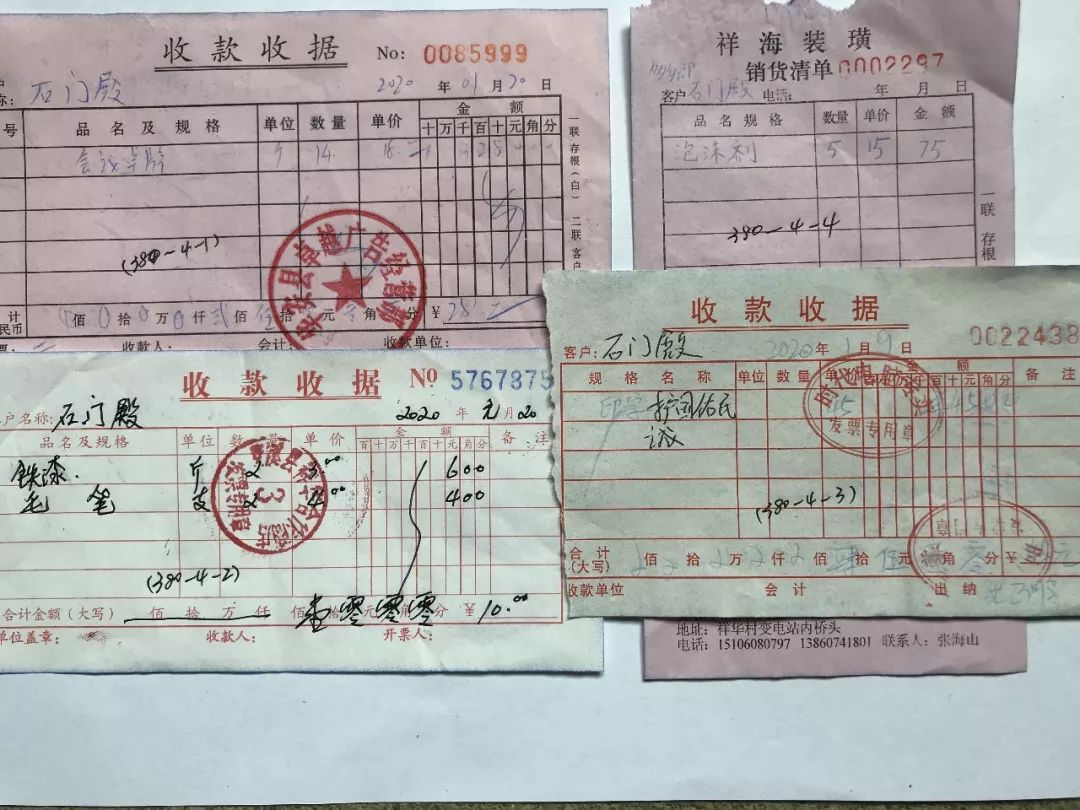 收款收据 No: 0085999
石门殿 2020年01月20日
号 品名及规格 单位 数量 单价 金额
十万千百十元角分
14
一联存根(白) 二联客户
(380-4-1)
安县卓越广告经营部
计 佰 拾 万 仟贰佰伍拾 元 角 分 ¥
民币
收款人: 会计: 收款单位:
祥海装璜
销货清单 0002297
客户石门殿 电话: 年 月 日
品名规格 数量 单价 金额
泡沫剂 5 15 75
380-4-4
一联 存根
地址: 祥华村变电站内桥头
电话: 15106080797 13860741801 联系人: 张海山
收款收据 № 5767875
户名称: 石门殿 2020年元月20
品名及规格 单位 数量 单价 金额 备注
百十万千百十元角分
铁漆 斤 2 3.00 600
毛笔 支 2 400
(380-4-2)
合计金额(大写) 佰 拾 万 仟 佰壹拾零元零角零分 ¥10.00
单位盖章: 收款人: 开票人:
收款收据
0022438
客户: 石门殿 2020年1月9日
规格名称 单位 数量 单价 金额 备注
百十万千百十元角分
护国佑民 45
发票专用章
(380-4-3)
合计(大写) 佰 拾 万 仟 佰 拾伍元零角 分 ¥
收款单位 会计 出纳